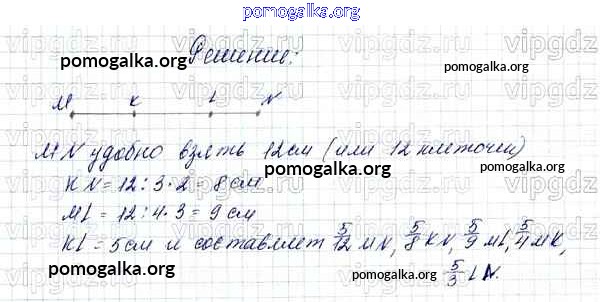 pomogalka.org
Решение:
pomogalka.org
pomogalka.org
M K L N
pomogalka.org
MN удобно взять 12 см (или 12 клеточек)
pomogalka.org
KN = 12 : 3 · 2 = 8 см
pomogalka.org
ML = 12 : 4 · 3 = 9 см
KL = 5 см и составляет 5/12 MN, 5/8 KN, 5/9 ML, 5/4 MK,
5/3 LN.
pomogalka.org
pomogalka.org